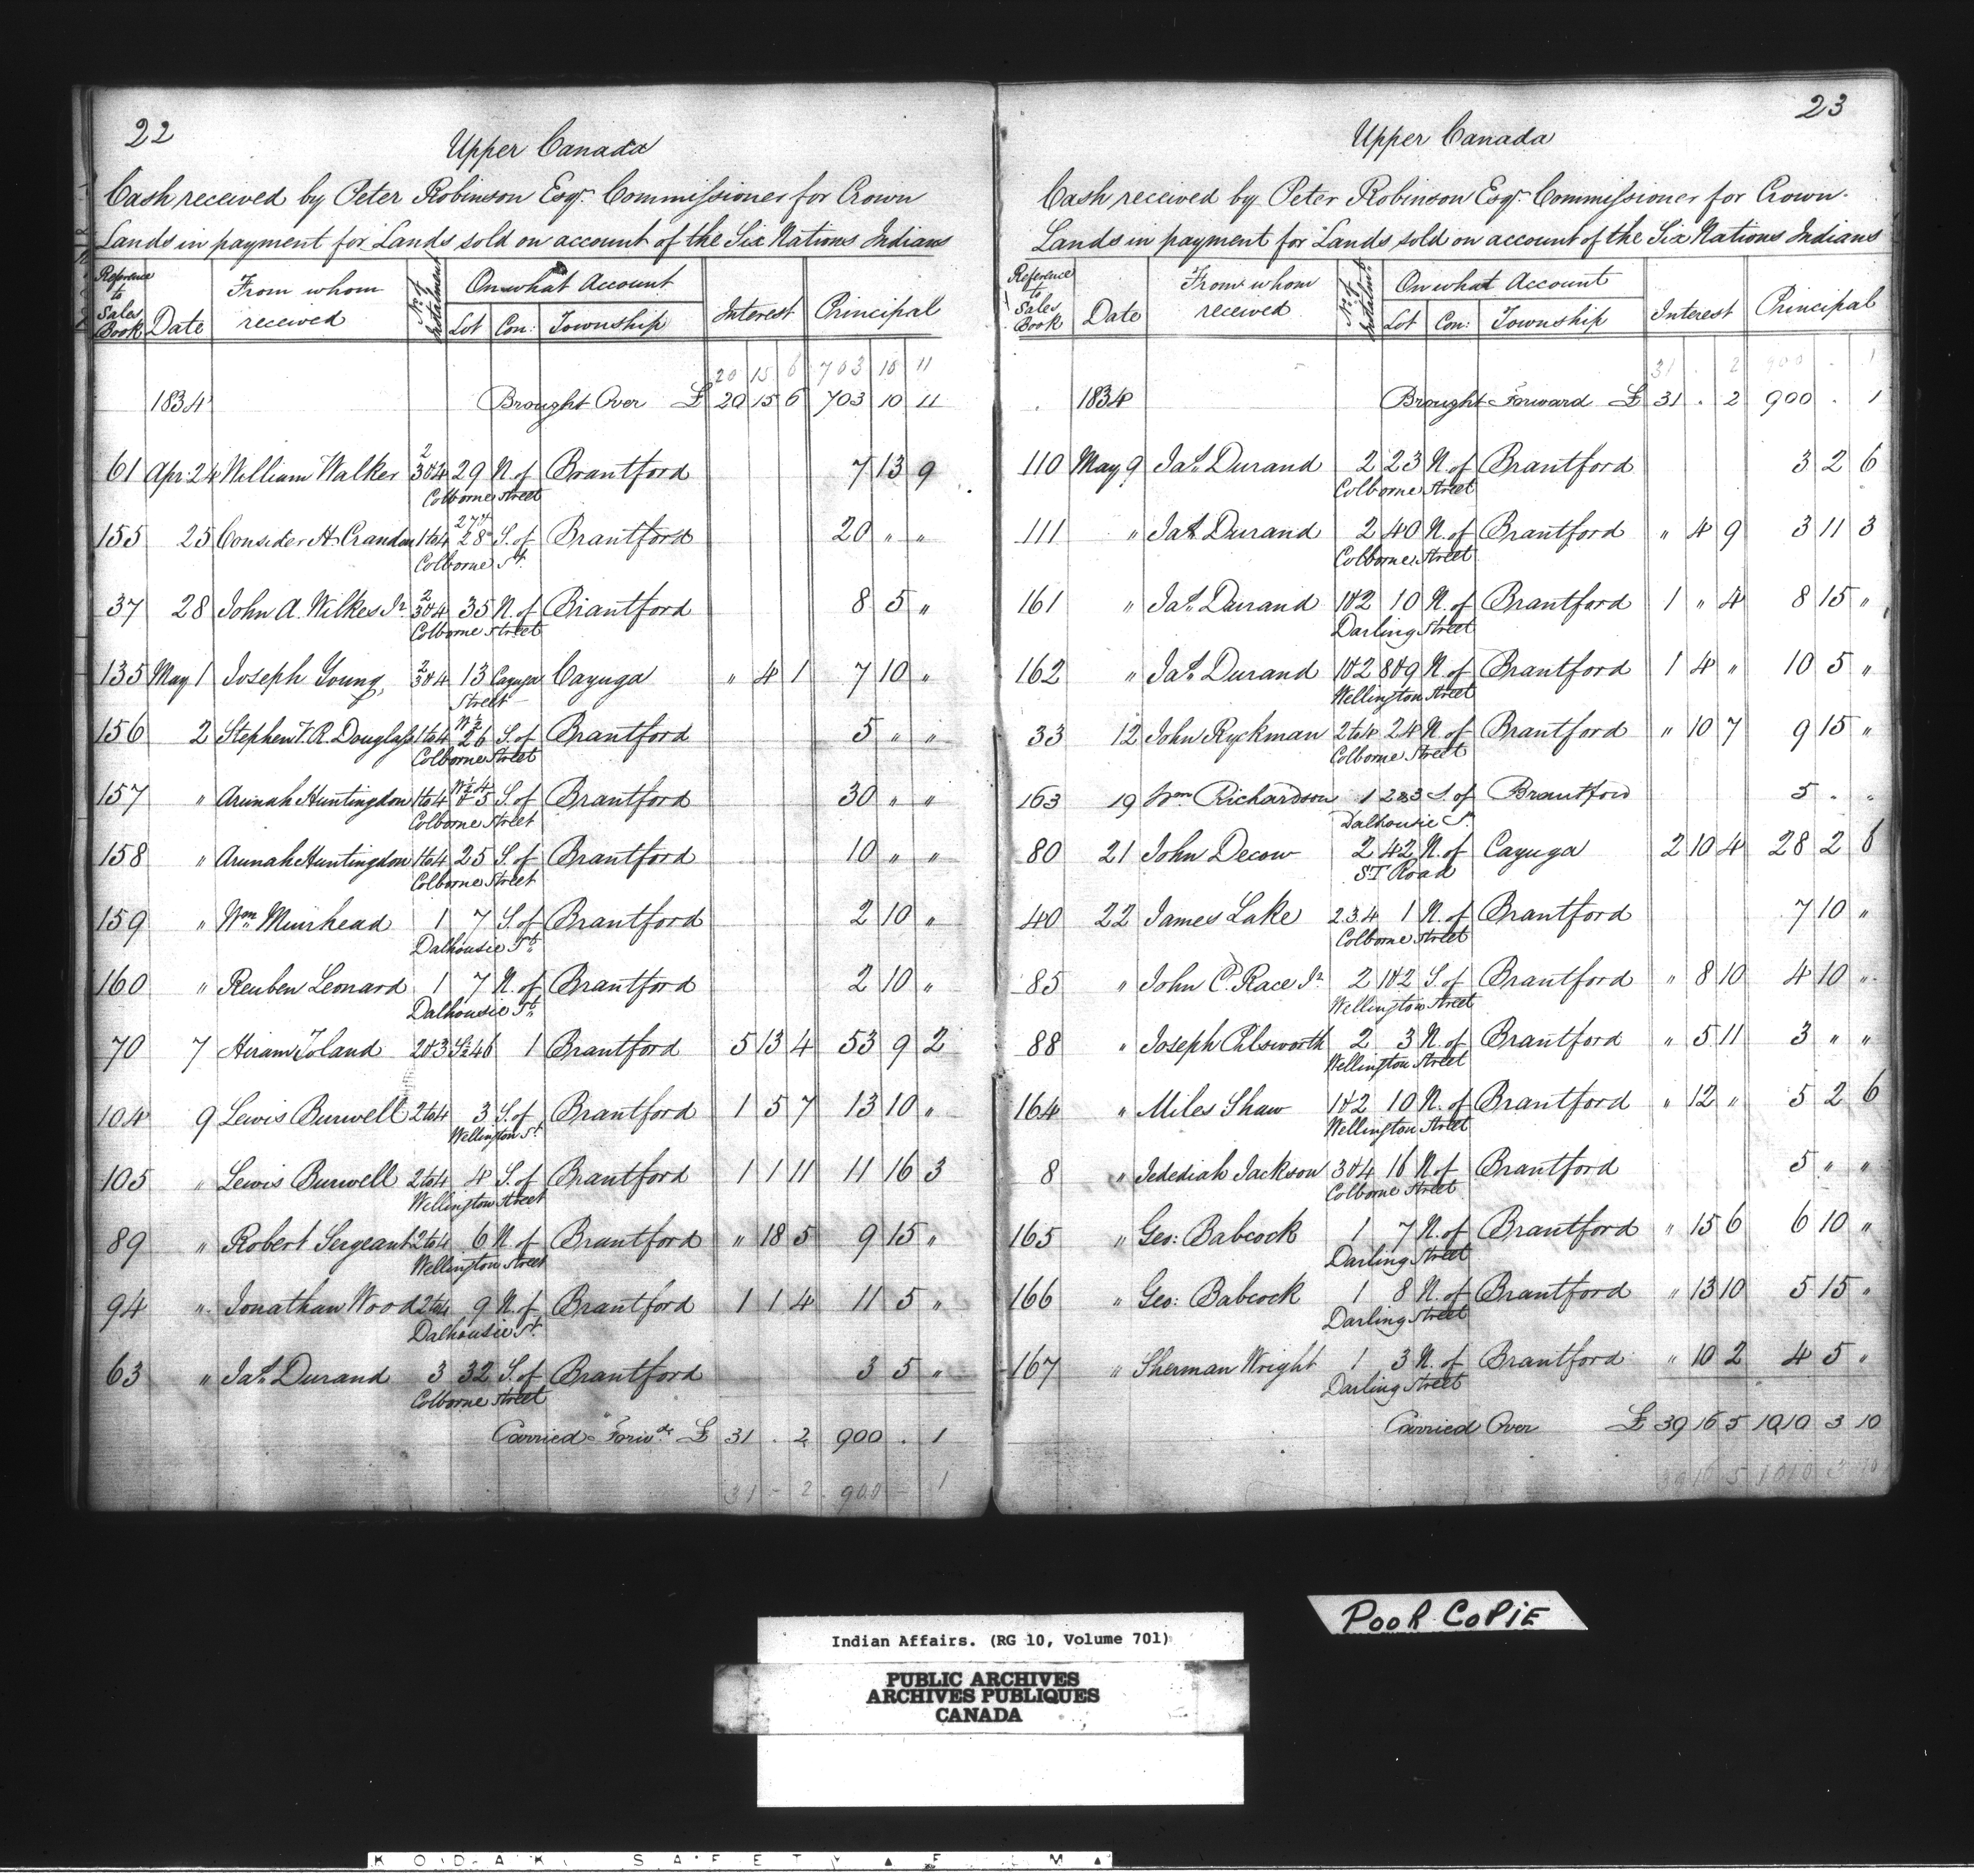 22
Upper Canada
Cash received by Peter Robinson Esqr. Commissioner for Crown
Lands in payment for Lands sold on account of the Six Nations Indians
Reference to Sales Book Date From whom received No. of Instalment On what Account Interest Principal
Lot Con: Township
20 15 6 703 10 11
1834 Brought Over £ 20 15 6 703 10 11
61 Apr: 24 William Walker 2 3 & 4 29 N. of Brantford 7 13 9
Colborne Street
155 25 Consider H. Crandon 1 to 4 27 & 28 S. of Brantford 20 " "
Colborne St.
37 28 John A. Wilkes Jr. 2 3 & 4 35 N. of Brantford 8 5 "
Colborne Street
135 May 1 Joseph Young 2 3 & 4 13 Cayuga Cayuga " 4 1 7 10 "
Street
156 2 Stephen V. R. Douglass 1 to 4 W½ 26 S. of Brantford 5 " "
Colborne Street
157 " Arunah Huntingdon 1 to 4 W½ 4 & 5 S. of Brantford 30 " "
Colborne Street
158 " Arunah Huntingdon 1 to 4 25 S. of Brantford 10 " "
Colborne Street
159 " Wm. Muirhead 1 7 S. of Brantford 2 10 "
Dalhousie St.
160 " Reuben Leonard 1 7 N. of Brantford 2 10 "
Dalhousie St.
70 7 Hiram Toland 2 & 3 S½ 46 1 Brantford 5 13 4 53 9 2
104 9 Lewis Burwell 2 to 4 3 S. of Brantford 1 5 7 13 10 "
Wellington St.
105 " Lewis Burwell 2 to 4 4 S. of Brantford 1 1 11 11 16 3
Wellington Street
89 " Robert Sergeant 2 to 4 6 N. of Brantford " 18 5 9 15 "
Wellington Street
94 " Jonathan Wood 2 to 4 9 N. of Brantford 1 1 4 11 5 "
Dalhousie St.
63 " Jas. Durand 3 32 S. of Brantford 3 5 "
Colborne Street
Carried Forwd. £ 31 . 2 900 . 1
31 - 2 900 - 1
23
Upper Canada
Cash received by Peter Robinson Esqr. Commissioner for Crown
Lands in payment for Lands sold on account of the Six Nations Indians
Reference to Sales Book Date From whom received No. of Instalment On what Account Interest Principal
Lot Con: Township
31 . 2 900 . 1
1834 Brought Forward £ 31 . 2 900 . 1
110 May 9 Jas. Durand 2 23 N. of Brantford 3 2 6
Colborne Street
111 " Jas. Durand 2 40 N. of Brantford " 4 9 3 11 3
Colborne Street
161 " Jas. Durand 1 & 2 10 N. of Brantford 1 " 4 8 15 "
Darling Street
162 " Jas. Durand 1 & 2 8 & 9 N. of Brantford 1 4 " 10 5 "
Wellington Street
33 12 John Ryckman 2 to 4 24 N. of Brantford " 10 7 9 15 "
Colborne Street
163 19 Wm Richardson 1 2 & 3 S. of Brantford 5 . "
Dalhousie St.
80 21 John Decow 2 42 N. of Cayuga 2 10 4 28 2 6
ST Road
40 22 James Lake 2 3 4 1 N. of Brantford 7 10 "
Colborne Street
85 " John C. Race Jr. 2 1 & 2 S. of Brantford " 8 10 4 10 "
Wellington Street
88 " Joseph Chlsworth 2 3 N. of Brantford " 5 11 3 " "
Wellington Street
164 " Miles Shaw 1 & 2 10 N. of Brantford " 12 " 5 2 6
Wellington Street
8 " Jedediah Jackson 3 & 4 16 N. of Brantford 5 " "
Colborne Street
165 " Geo: Babcock 1 7 N. of Brantford " 15 6 6 10 "
Darling Street
166 " Geo: Babcock 1 8 N. of Brantford " 13 10 5 15 "
Darling Street
167 " Sherman Wright 1 3 N. of Brantford " 10 2 4 5 "
Darling Street
Carried Over £ 39 16 5 1010 3 10
39 16 5 1010 3 10
POOR COPIE
Indian Affairs. (RG 10, Volume 701)
PUBLIC ARCHIVES
ARCHIVES PUBLIQUES
CANADA
KODAK SAFETY FILM